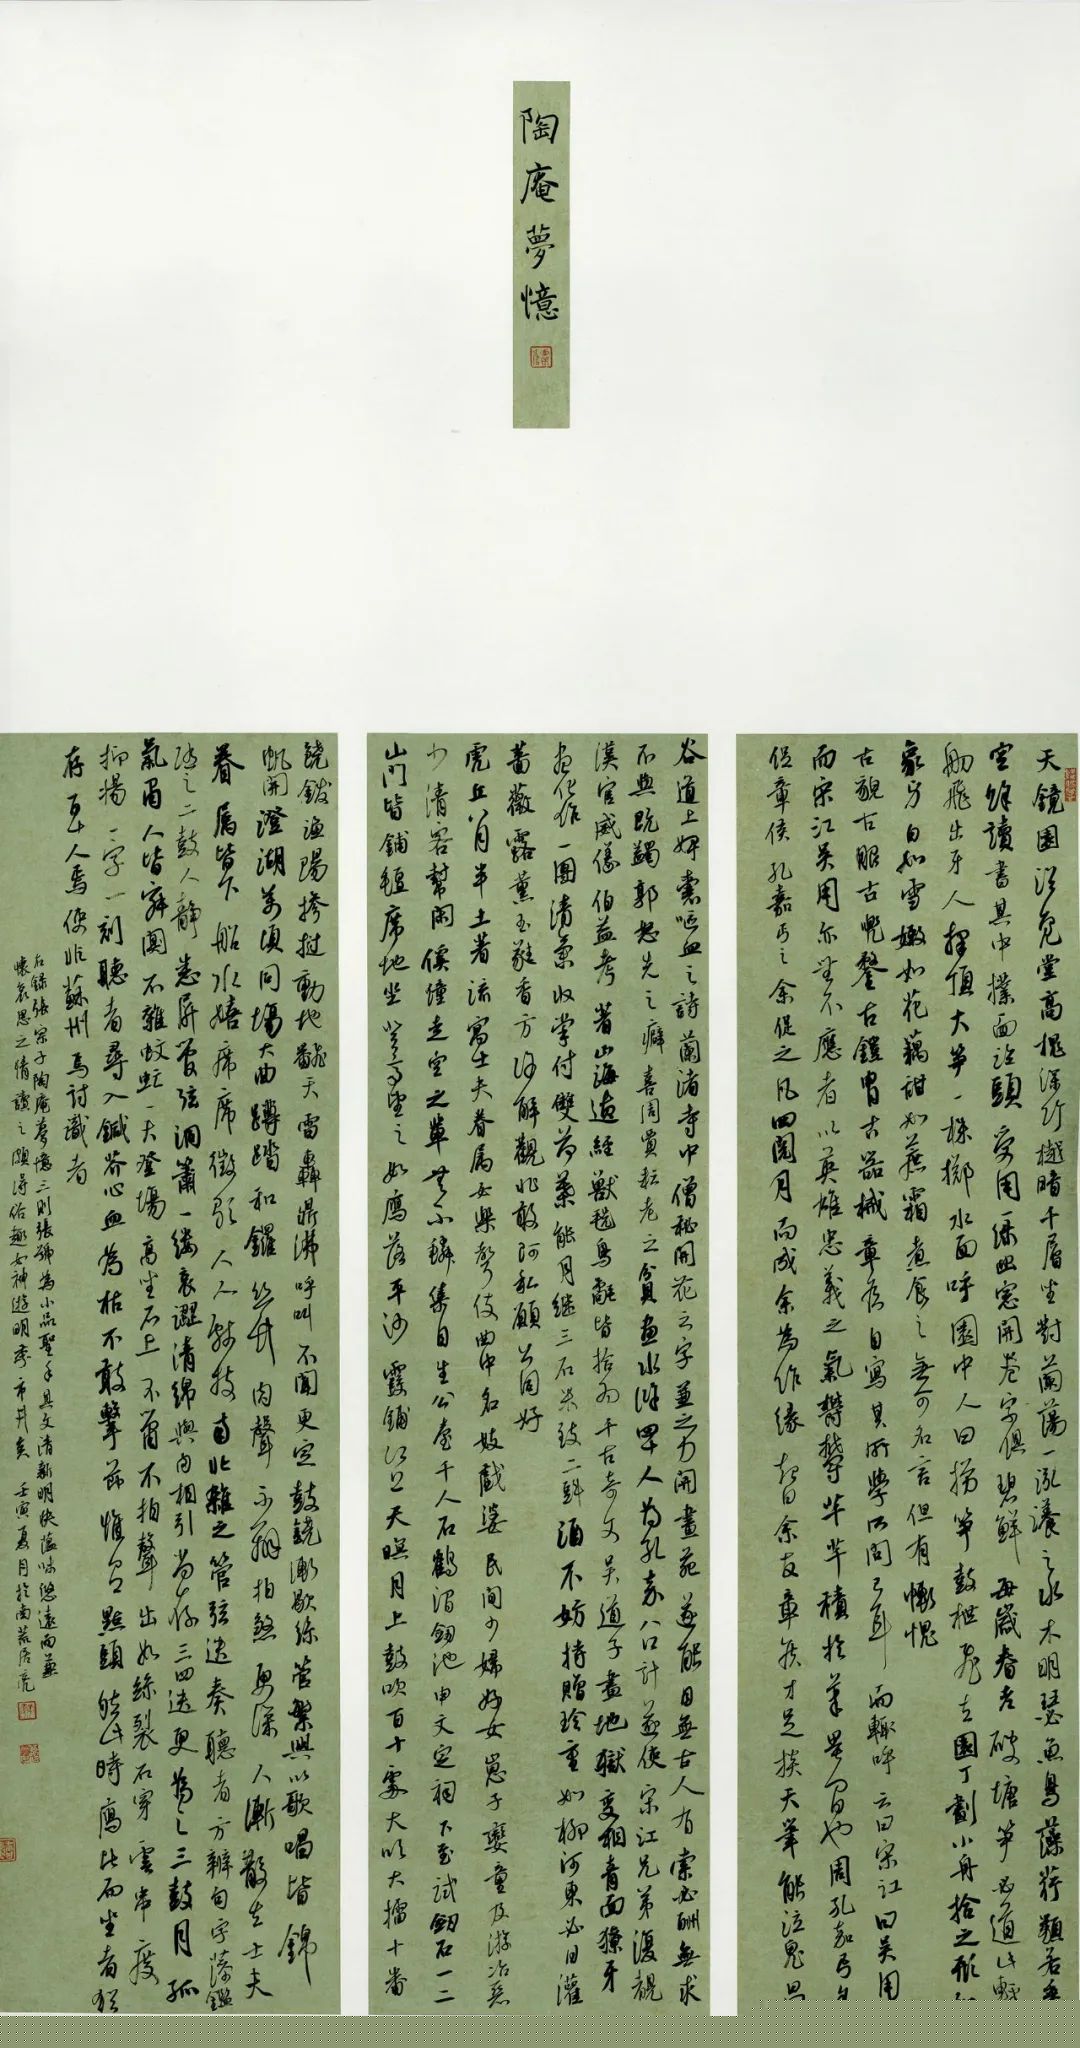 陶庵夢憶
天鏡園浴凫堂高槐深竹樾暗千層坐對蘭蕩一泓漾之水木明瑟魚鳥藻荇類若乘
空餘讀書其中撲面臨頭受用一綠幽窓開卷字俱碧鮮每歲春老破塘筍必道此輕
舠飛出牙人擇頂大筍一株擲水面呼園中人曰撈筍鼓枻飛去園丁劃小舟拾之形如
象牙白如雪嫩如花藕甜如蔗霜煮食之無可名言但有慚愧
古貌古服古兜鍪古鎧冑古器械章侯自寫其所學所問已耳而輒呼之曰宋江曰吳用
而宋江吳用亦無不應者以英雄忠義之氣鬱鬱芊芊積於筆墨間也周孔嘉丐余
促章侯孔嘉丐之余促之凡四閱月而成余為作緣起曰余友章侯才足掞天筆能泣鬼昌
谷道上婢囊嘔血之詩蘭渚寺中僧秘開花之字兼之力開畫苑遂能目無古人有索必酬無求
不與既蠲郭恕先之癖喜周賈耘老之貧畫水滸四十人為孔嘉八口計遂使宋江兄弟復覩
漢官威儀伯益考著山海遺經獸毨鳥氄皆拾為千古奇文吳道子畫地獄變相青面獠牙
盡化作一團清氣收掌付雙荷葉能月繼三石米致二斗酒不妨持贈珍重如柳河東必日灌
薔薇露薰玉蕤香方許解觀非敢阿私願公同好
虎丘八月半土著流寓士夫眷屬女樂聲伎曲中名妓戲婆民間少婦好女崽子孌童及游冶惡
少清客幫閑傒僮走空之輩無不鱗集自生公臺千人石鶴澗劍池申文定祠下至試劍石一二
山門皆鋪氈席地坐登高望之如鴈落平沙霞鋪江上天暝月上鼓吹百十處大吹大擂十番
鐃鈸漁陽摻撾動地翻天雷轟鼎沸呼叫不聞更定鼓鐃漸歇絲管繁興以歌唱皆錦
帆開澄湖萬頃同場大曲蹲踏和鑼絲竹肉聲不辨拍煞更深人漸散去士夫
眷屬皆下船水嬉席席徵歌人人獻技南北雜之管弦迭奏聽者方辨句字藻鑑
隨之二鼓人靜悉屏管弦洞簫一縷哀澀清綿與肉相引尚存三四迭更為之三鼓月孤
氣肅人皆寂闃不雜蚊虻一夫登場高坐石上不簫不拍聲出如絲裂石穿雲串度
抑揚一字一刻聽者尋入鍼芥心血為枯不敢擊節惟有點頭然此時鴈比而坐者猶
存百十人焉使非蘇州焉討識者
右錄張宗子陶庵夢憶三則張號為小品聖手其文清新明快蘊味悠遠而兼
懷哀思之情讀之頗得俗趣如神遊明季市井矣壬寅夏月於南